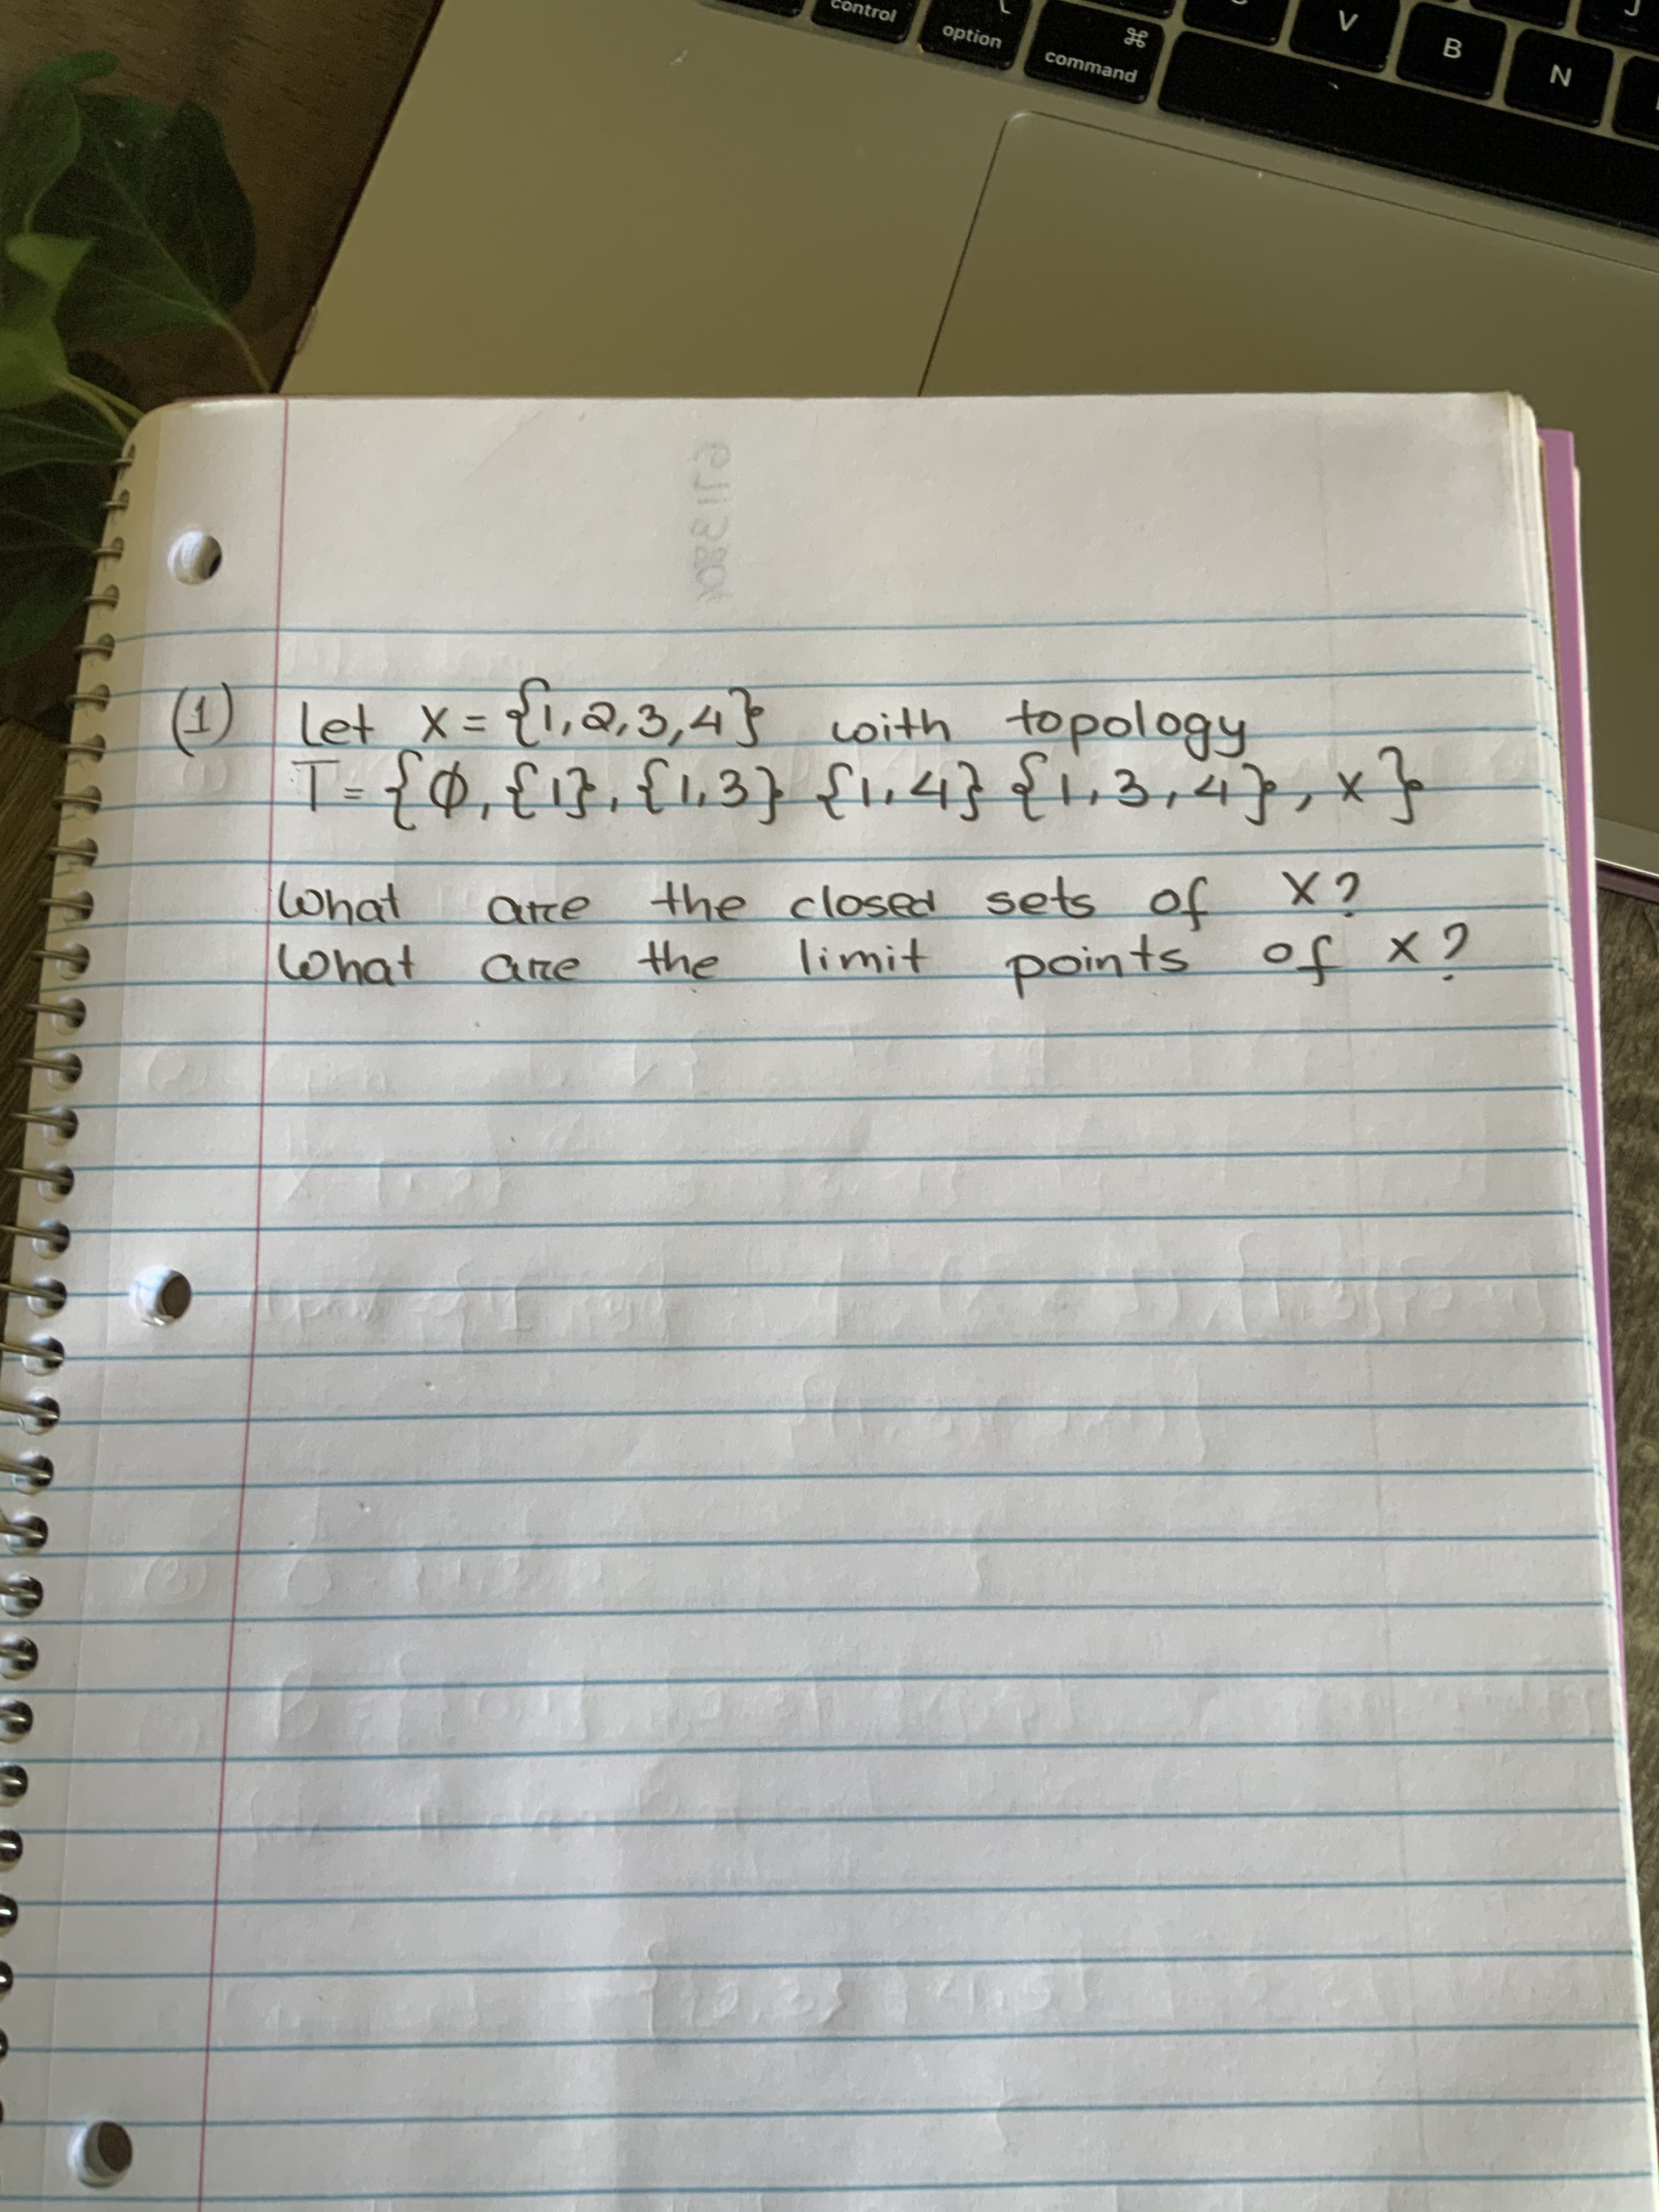 control
option
⌘
command
V
B
N
J
(1) Let X = {1,2,3,4} with topology
T = {Ø, {1}, {1,3} {1,4} {1,3,4}, X}
What are the closed sets of X?
What are the limit points of X?